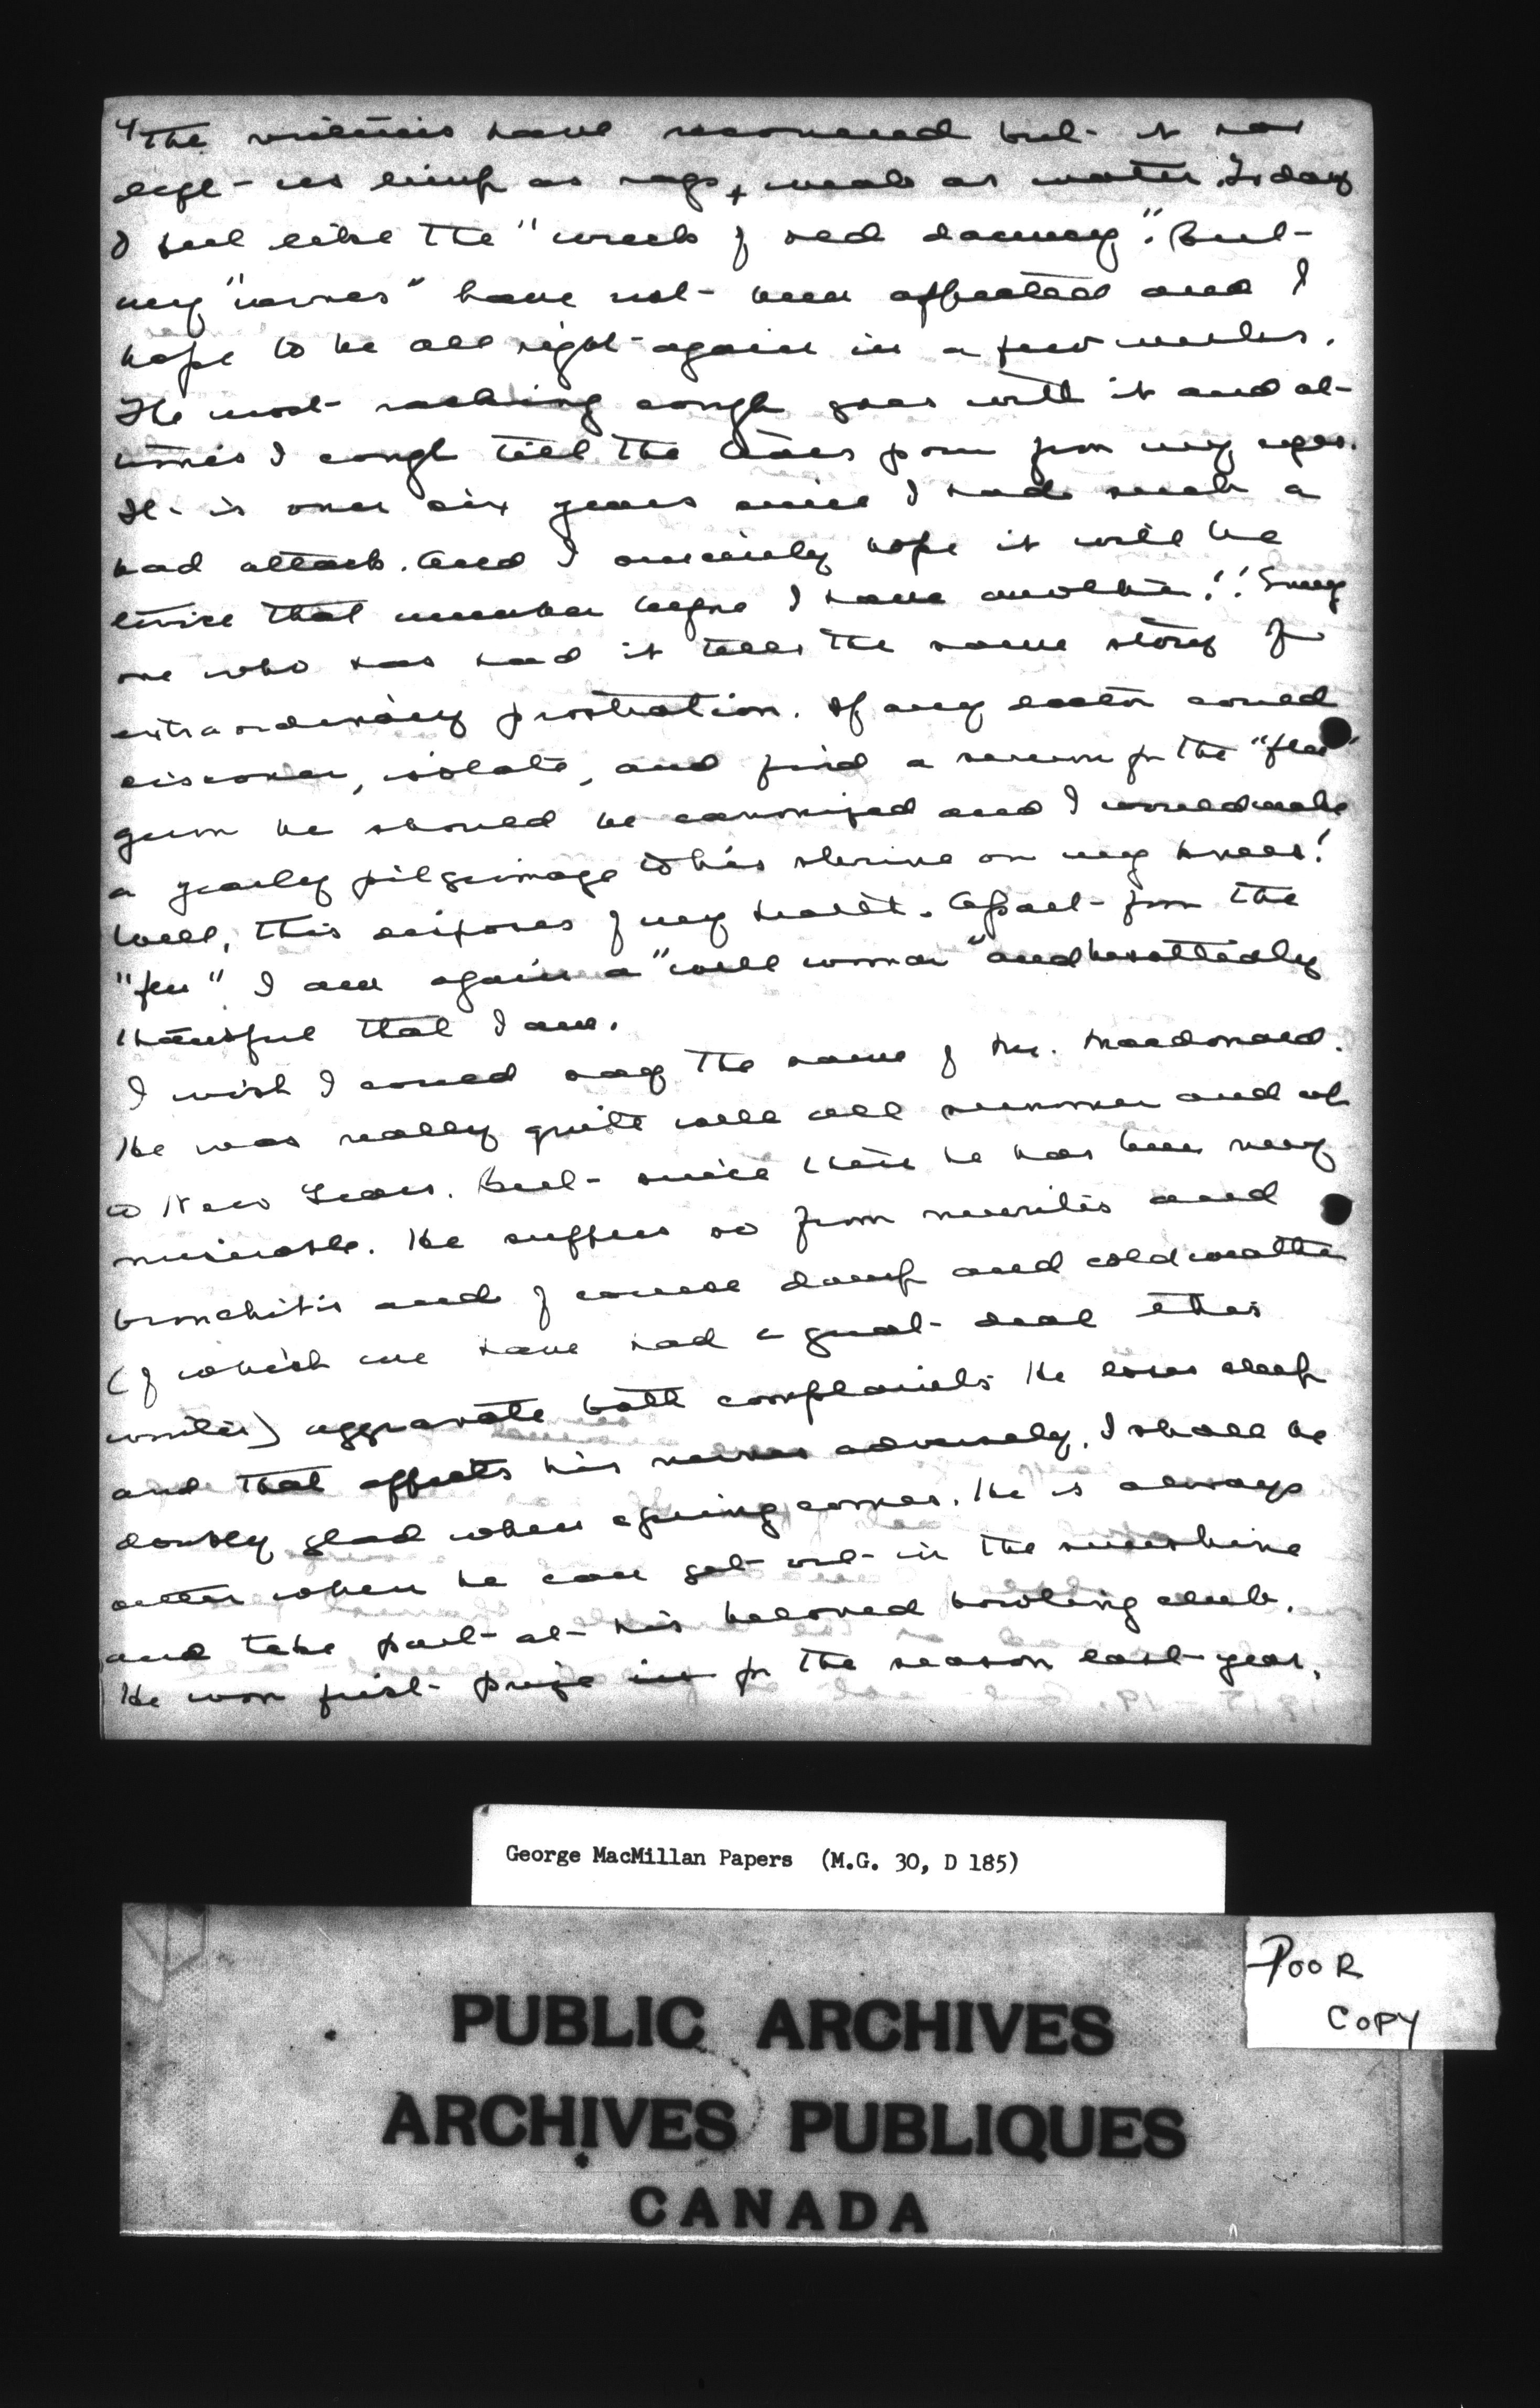 4
The victims have recovered but it has
left us limp as rags + weak as water. Today
I feel like the "wreck of red dawney". But
my "nerves" have not been affected and I
hope to be all right again in a few weeks.
The most racking cough goes with it and at
times I cough till the tears pour from my eyes.
It is over six years since I had such a
bad attack. And I sincerely hope it will be
twice that number before I have another!! Every
one who has had it tells the same story of
extraordinary prostration. If any doctor could
discover, isolate, and find a serum for the "flu"
germ he should be canonized and I would make
a yearly pilgrimage to his shrine on my knees!
Well, this disposes of my health. Apart from the
"flu" I am again a "well woman" and
thankful that I am.
I wish I could say the same of Mr. Macdonald.
He was really quite well all summer and up
to New Years. But since then he has been very
miserable. He suffers so from neuritis and
bronchitis and of course damp and cold weather
(of which we have had a great deal this
winter) aggravate both complaints. He loses sleep
and that affects his nerves adversely. I shall be
doubly glad when spring comes. He is always
better when he can get out in the sunshine
and take part at his beloved bowling club.
He won first prize for the season last year.
George MacMillan Papers (M.G. 30, D 185)
POOR
COPY
PUBLIC ARCHIVES
ARCHIVES PUBLIQUES
CANADA